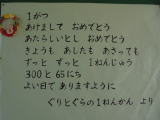 1がつ
あけまして おめでとう
あたらしいとし おめでとう
きょうも あしたも あさっても
ずっと ずっと 1ねんじゅう
300と 65にち
よい日で ありますように
ぐりとぐらの1ねんかん より